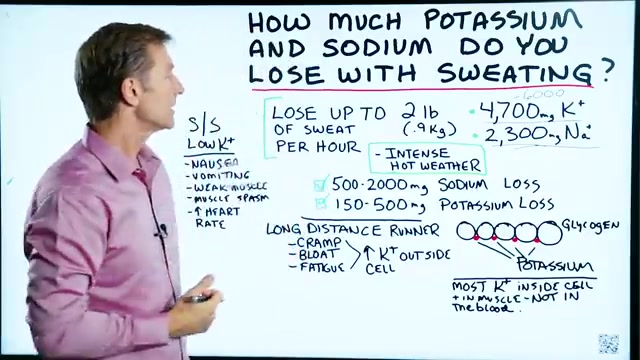 HOW MUCH POTASSIUM
AND SODIUM DO YOU
LOSE WITH SWEATING?
S/S
LOW K+
- NAUSEA
- VOMITING
- WEAK MUSCLE
- MUSCLE SPASM
- ↑ HEART
RATE
LOSE UP TO 2 lb
OF SWEAT (.9 Kg)
PER HOUR
- INTENSE
HOT WEATHER
-6000
• 4,700mg K+
• 2,300mg Na+
500-2000mg SODIUM LOSS
150-500mg POTASSIUM LOSS
LONG DISTANCE RUNNER
- CRAMP
- BLOAT
- FATIGUE
↑ K+ OUTSIDE
CELL
GLYCOGEN
POTASSIUM
MOST K+ INSIDE CELL
+ IN MUSCLE - NOT IN
The blood.